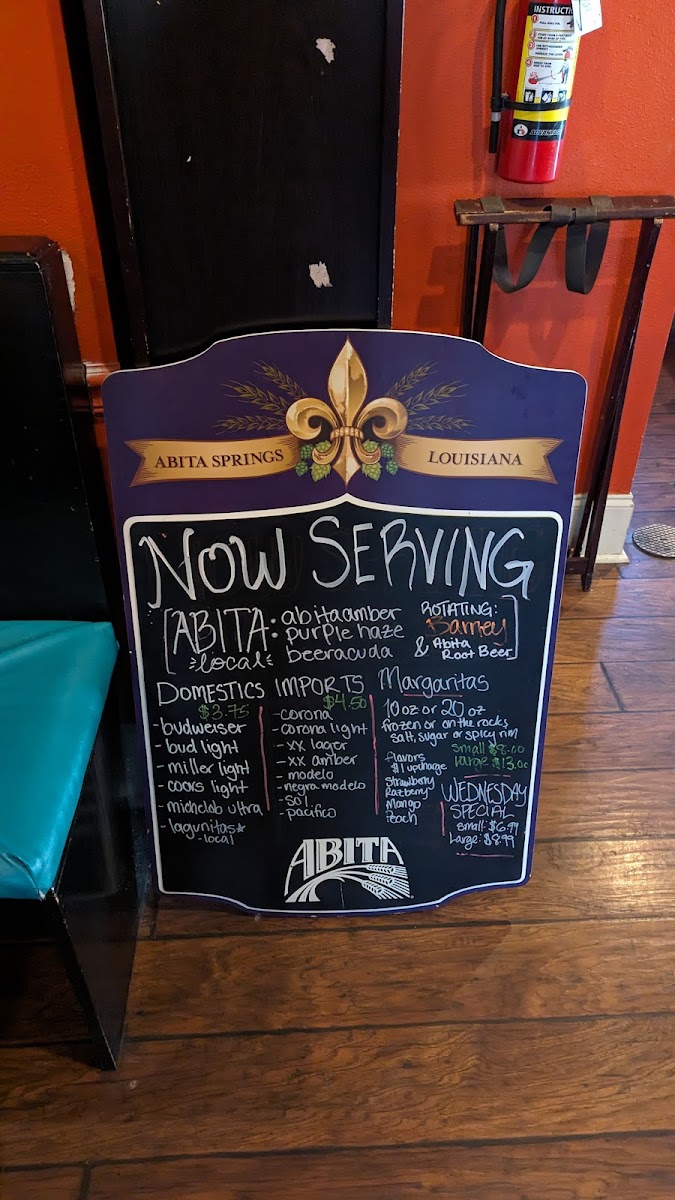 INSTRUCTIO
ADVANTAGE
ABITA SPRINGS
LOUISIANA
NOW SERVING
[ABITA:
*local*
abita amber
purple haze
beeracuda
ROTATING:
Barney
& Abita
Root Beer]
DOMESTICS
$3.75
-budweiser
-bud light
-miller light
-coors light
-michelob ultra
-lagunitas*
-local
IMPORTS
$4.50
-corona
-corona light
-xx lager
-xx amber
-modelo
-negra modelo
-sol
-pacifico
Margaritas
10 oz or 20 oz
frozen or on the rocks
salt, sugar or spicy rim
small $8.00
large $13.00
flavors
$1 upcharge
Strawberry
Razberry
Mango
Peach
WEDNESDAY
SPECIAL
small: $6.99
Large: $8.99
ABITA